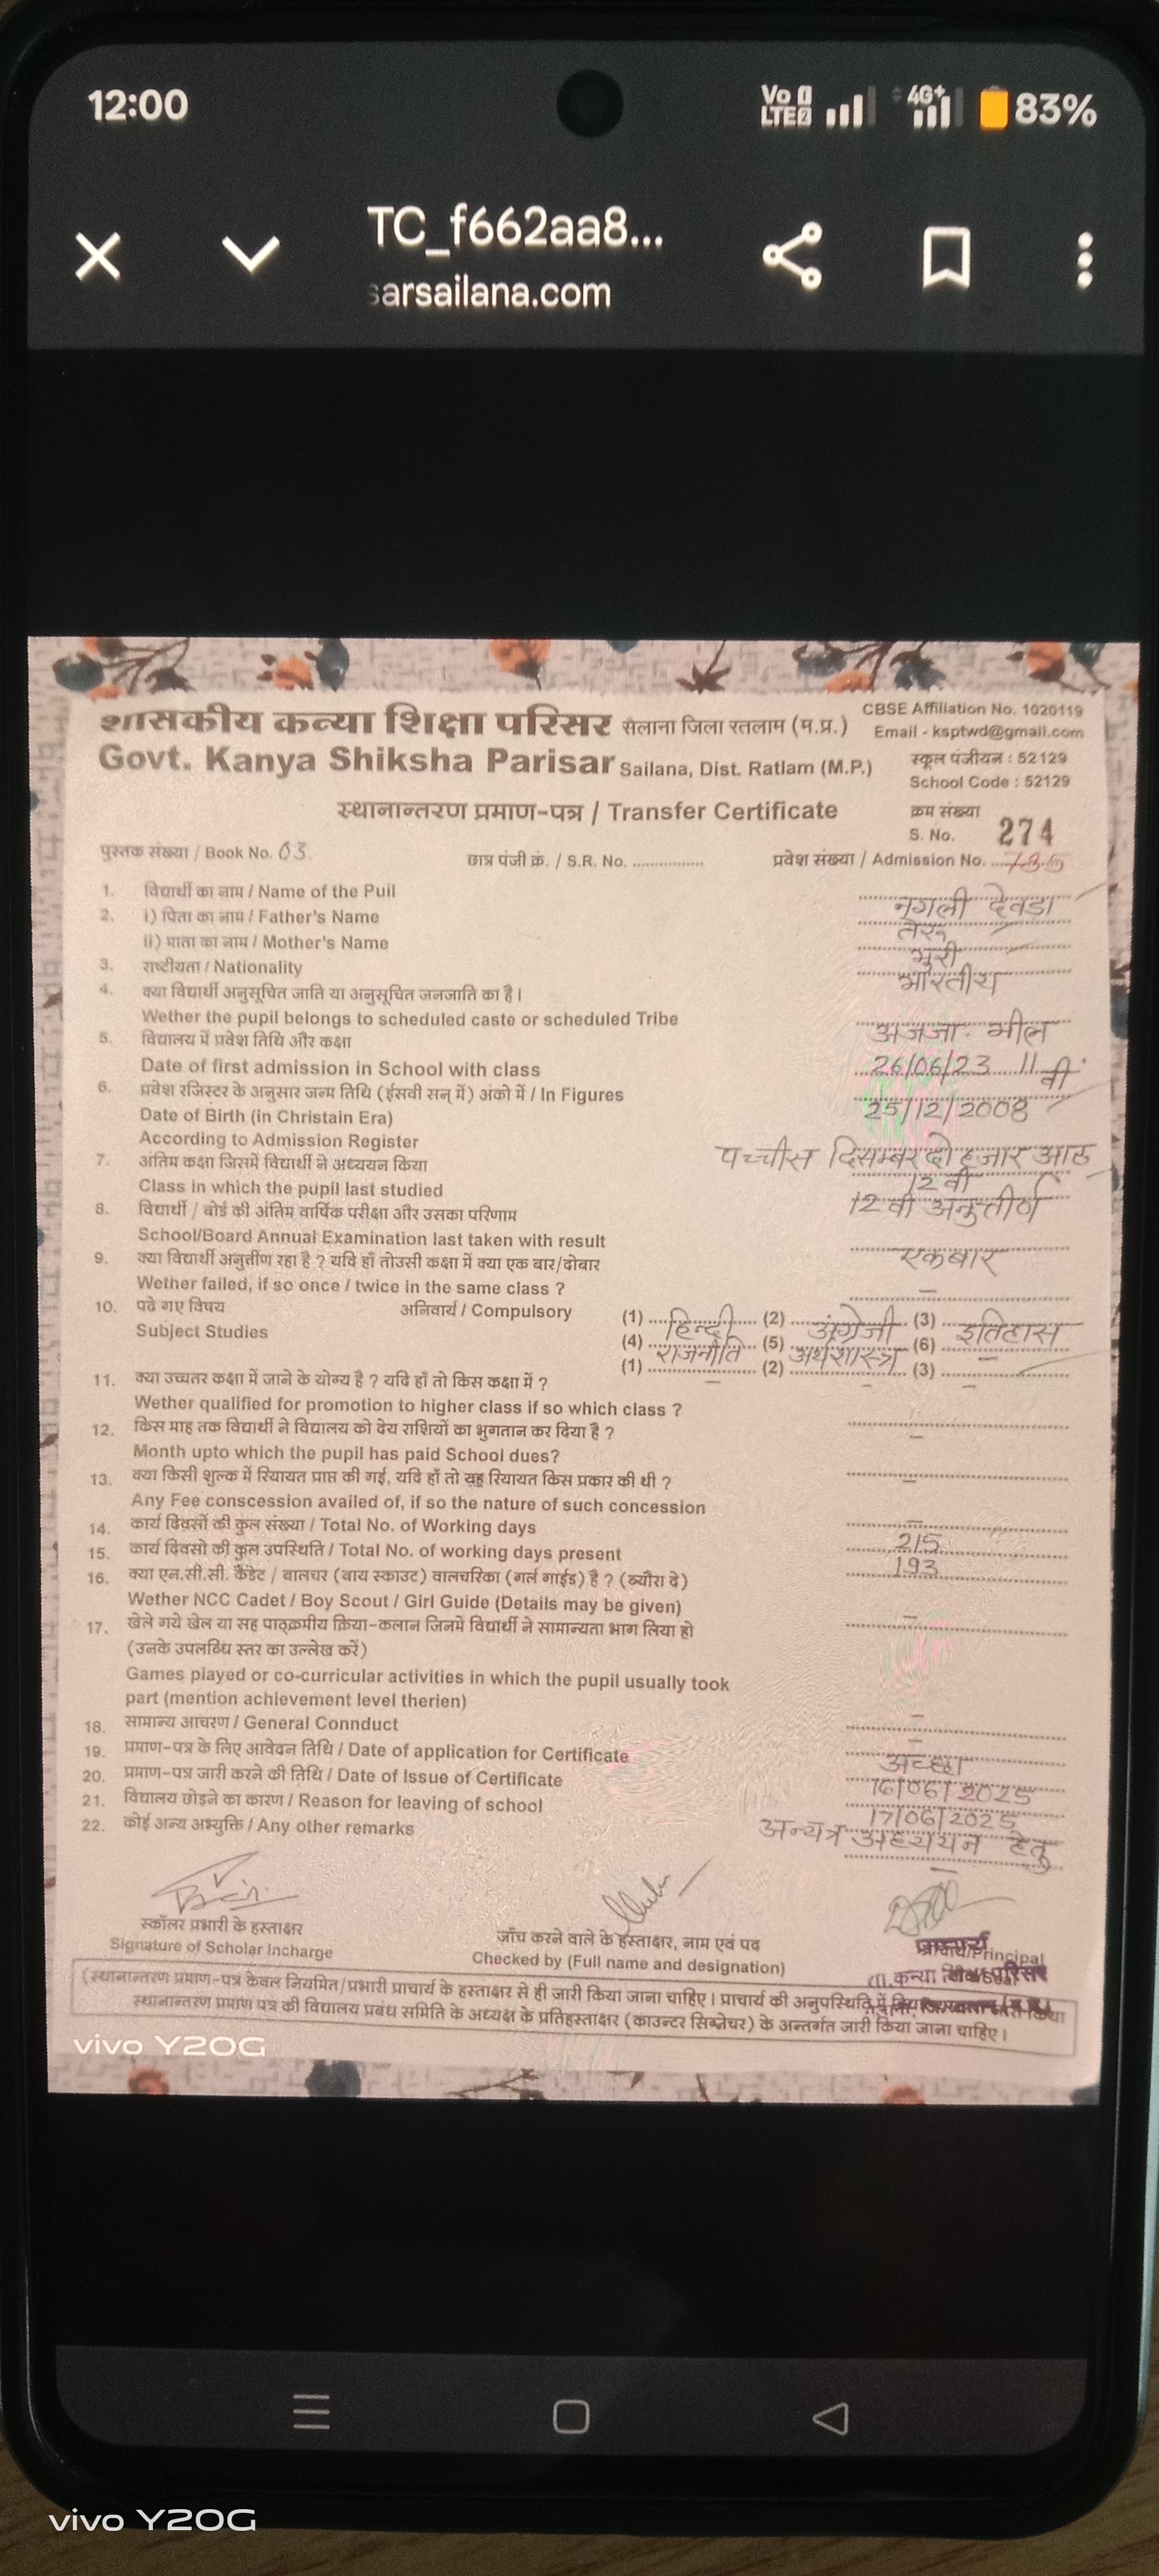 12:00
Vo LTE2 4G+ 83%
TC_f662aa8...
sarsailana.com
शासकीय कन्या शिक्षा परिसर सैलाना जिला रतलाम (म.प्र.)
CBSE Affiliation No. 1020119
Email - ksptwd@gmail.com
Govt. Kanya Shiksha Parisar Sailana, Dist. Ratlam (M.P.)
स्कूल पंजीयन : 52129
School Code : 52129
स्थानान्तरण प्रमाण-पत्र / Transfer Certificate
क्रम संख्या
S. No. 274
पुस्तक संख्या / Book No. 03. छात्र पंजी क्रं. / S.R. No. ............... प्रवेश संख्या / Admission No.
1. विद्यार्थी का नाम / Name of the Puil नगली देवडा
2. i) पिता का नाम / Father's Name
ii) माता का नाम / Mother's Name भुरी
3. राष्टीयता / Nationality भारतीय
4. क्या विद्यार्थी अनुसूचित जाति या अनुसूचित जनजाति का है।
Wether the pupil belongs to scheduled caste or scheduled Tribe अजजा. भील
5. विद्यालय में प्रवेश तिथि और कक्षा
Date of first admission in School with class 26/06/23 11 वी
6. प्रवेश रजिस्टर के अनुसार जन्म तिथि (ईसवी सन् में) अंको में / In Figures 25/12/2008
Date of Birth (in Christain Era)
According to Admission Register पच्चीस दिसम्बर दो हजार आठ
7. अंतिम कक्षा जिसमें विद्यार्थी ने अध्ययन किया
Class in which the pupil last studied 12 वी
8. विद्यार्थी / बोर्ड की अंतिम वार्षिक परीक्षा और उसका परिणाम 12 वी अनुत्तीर्ण
School/Board Annual Examination last taken with result
9. क्या विद्यार्थी अनुर्त्तीण रहा है ? यदि हाँ तोउसी कक्षा में क्या एक बार/दोबार एकबार
Wether failed, if so once / twice in the same class ? –
10. पढे गए विषय अनिवार्य / Compulsory (1) हिन्दी (2) अंग्रेजी (3) इतिहास
Subject Studies (4) राजनीति (5) अर्थशास्त्र (6) –
(1) – (2) – (3) –
11. क्या उच्चतर कक्षा में जाने के योग्य है ? यदि हाँ तो किस कक्षा में ?
Wether qualified for promotion to higher class if so which class ? –
12. किस माह तक विद्यार्थी ने विद्यालय को देय राशियों का भुगतान कर दिया है ?
Month upto which the pupil has paid School dues? –
13. क्या किसी शुल्क में रियायत प्राप्त की गई, यदि हाँ तो यह रियायत किस प्रकार की थी ?
Any Fee conscession availed of, if so the nature of such concession –
14. कार्य दिवसों की कुल संख्या / Total No. of Working days 215
15. कार्य दिवसो की कुल उपस्थिति / Total No. of working days present 193
16. क्या एन.सी.सी. कैडेट / बालचर (बाय स्काउट) वालचरिका (गर्ल गाईड) है ? (ब्यौरा दे)
Wether NCC Cadet / Boy Scout / Girl Guide (Details may be given) –
17. खेले गये खेल या सह पाठ्क्रमीय क्रिया-कलान जिनमें विद्यार्थी ने सामान्यता भाग लिया हो
(उनके उपलब्धि स्तर का उल्लेख करें)
Games played or co-curricular activities in which the pupil usually took
part (mention achievement level therien) –
18. सामान्य आचरण / General Connduct अच्छा
19. प्रमाण-पत्र के लिए आवेदन तिथि / Date of application for Certificate 16/06/2025
20. प्रमाण-पत्र जारी करने की तिथि / Date of Issue of Certificate 17/06/2025
21. विद्यालय छोड़ने का कारण / Reason for leaving of school अन्यत्र अध्ययन हेतु
22. कोई अन्य अभ्युक्ति / Any other remarks –
स्कॉलर प्रभारी के हस्ताक्षर
Signature of Scholar Incharge
जाँच करने वाले के हस्ताक्षर, नाम एवं पद
Checked by (Full name and designation)
प्राचार्य/Principal
कन्या शिक्षा परिसर
(स्थानान्तरण प्रमाण-पत्र केवल नियमित/प्रभारी प्राचार्य के हस्ताक्षर से ही जारी किया जाना चाहिए। प्राचार्य की अनुपस्थिति में जारी किया
स्थानान्तरण प्रमाण पत्र की विद्यालय प्रबंध समिति के अध्यक्ष के प्रतिहस्ताक्षर (काउन्टर सिग्नेचर) के अन्तर्गत जारी किया जाना चाहिए।
vivo Y20G
vivo Y20G